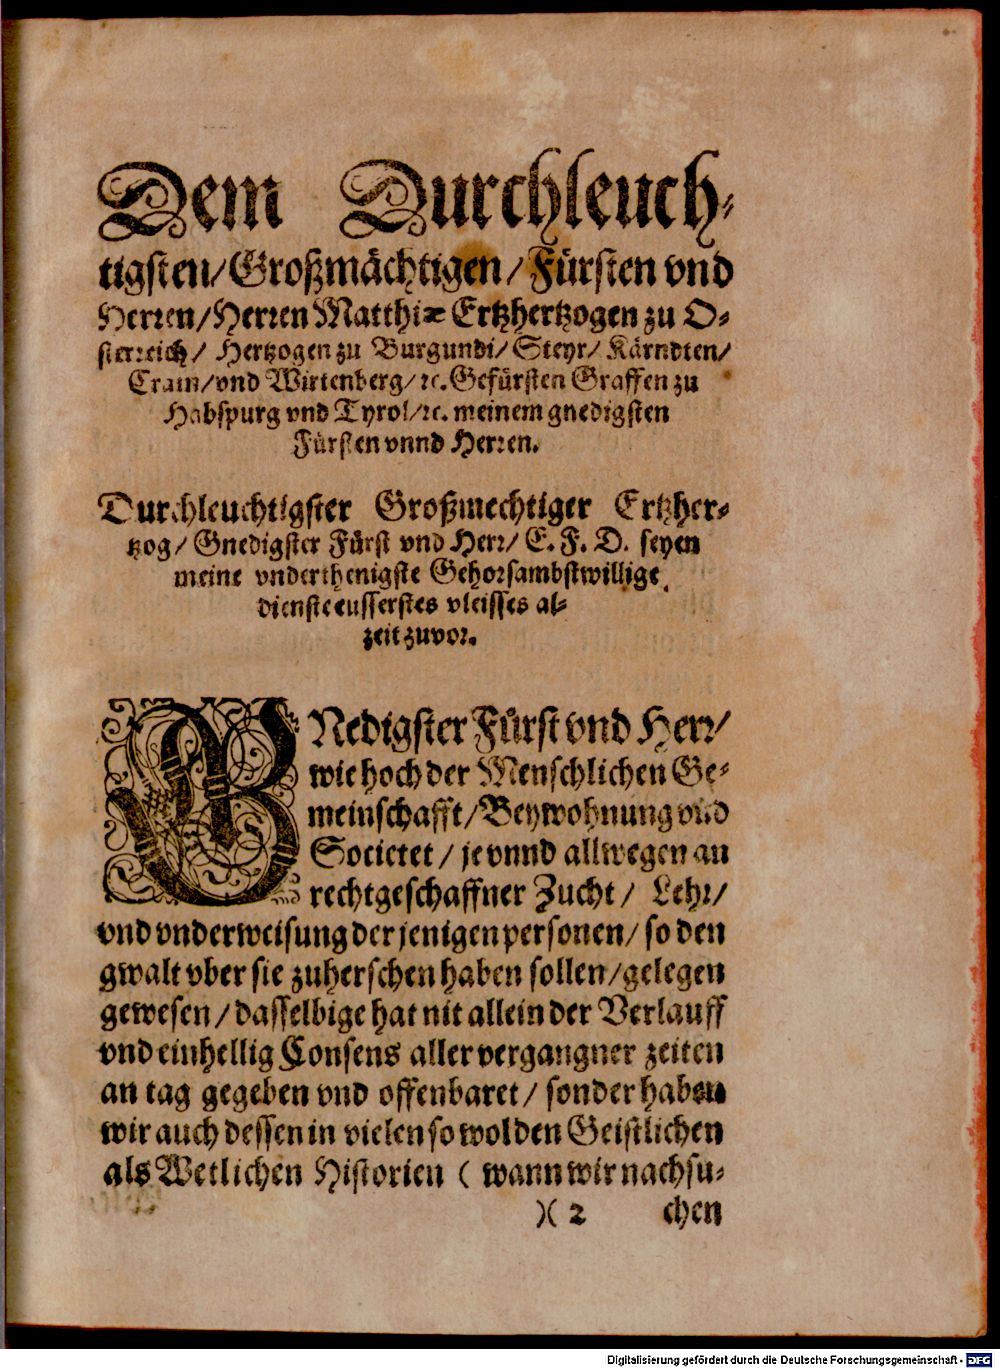 Dem Durchleuch-
tigsten/ Großmächtigen/ Fürsten vnd
Herren/ Herren Matthiæ Ertzhertzogen zu O-
sterreich/ Hertzogen zu Burgundi/ Steyr/ Kärndten/
Crain/ vnd Wirtenberg/ ꝛc. Gefürsten Graffen zu
Habspurg vnd Tyrol/ ꝛc. meinem gnedigsten
Fürsten vnnd Herren.
Durchleuchtigster Großmechtiger Ertzher-
tzog/ Gnedigster Fürst vnd Herr/ E. F. D. seyen
meine vnderthenigste Gehorsambstwillige
dienste eusserstes vleisses al-
zeit zuvor.
GNedigster Fürst vnd Herr/
wie hoch der Menschlichen Ge-
meinschafft/ Beywohnung vnd
Societet/ je vnnd allwegen an
rechtgeschaffner Zucht/ Lehr/
vnd vnderweisung der jenigen personen/ so den
gwalt vber sie zuherschen haben sollen/ gelegen
gewesen/ dasselbige hat nit allein der Verlauff
vnd einhellig Consens aller vergangner zeiten
an tag gegeben vnd offenbaret/ sonder haben
wir auch dessen in vielen so wol den Geistlichen
als Wetlichen Historien ( wann wir nachsu-
)( 2 chen
Digitalisierung gefördert durch die Deutsche Forschungsgemeinschaft - DFG